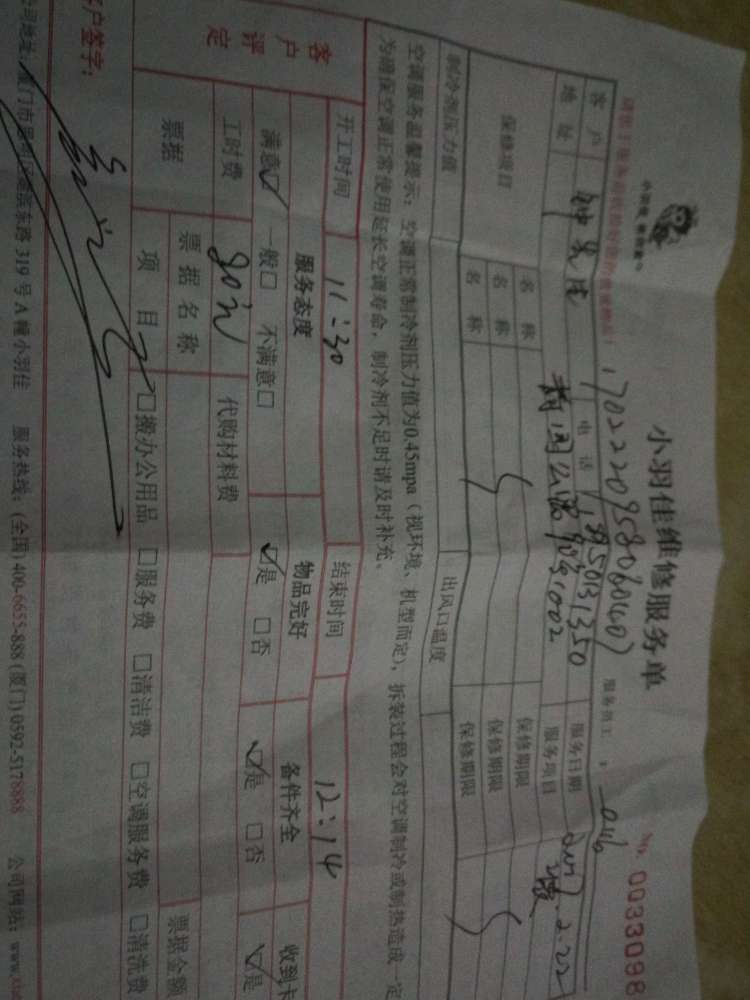 小羽佳维修服务单
No. 0033098
170222095806040
客户
电话
服务日期
地址
服务项目
保修项目
名称
保修期限
名称
保修期限
名称
保修期限
制冷剂压力值
出风口温度
空调服务温馨提示：空调正常制冷剂压力值为0.45mpa（视环境、机型而定），拆装过程会对空调制冷或制热造成一定
为确保空调正常使用延长空调寿命，制冷剂不足时请及时补充。
开工时间 11:30 结束时间 12:14
客户评定
服务态度 物品完好 备件齐全 收到
满意☑ 一般□ 不满意□ ☑是 □否 ☑是 □否 ☑是
工时费 80元 代购材料费
票据 票据名称 票据金额
项目 □搬办公用品 □服务费 □清洁费 □空调服务费 □清洗费
客户签字：
公司地址：厦门市思明区 东路319号A幢小羽佳 服务热线：(全国) 400-6655-888 (厦门) 0592-5178888 公司网站：www.xia